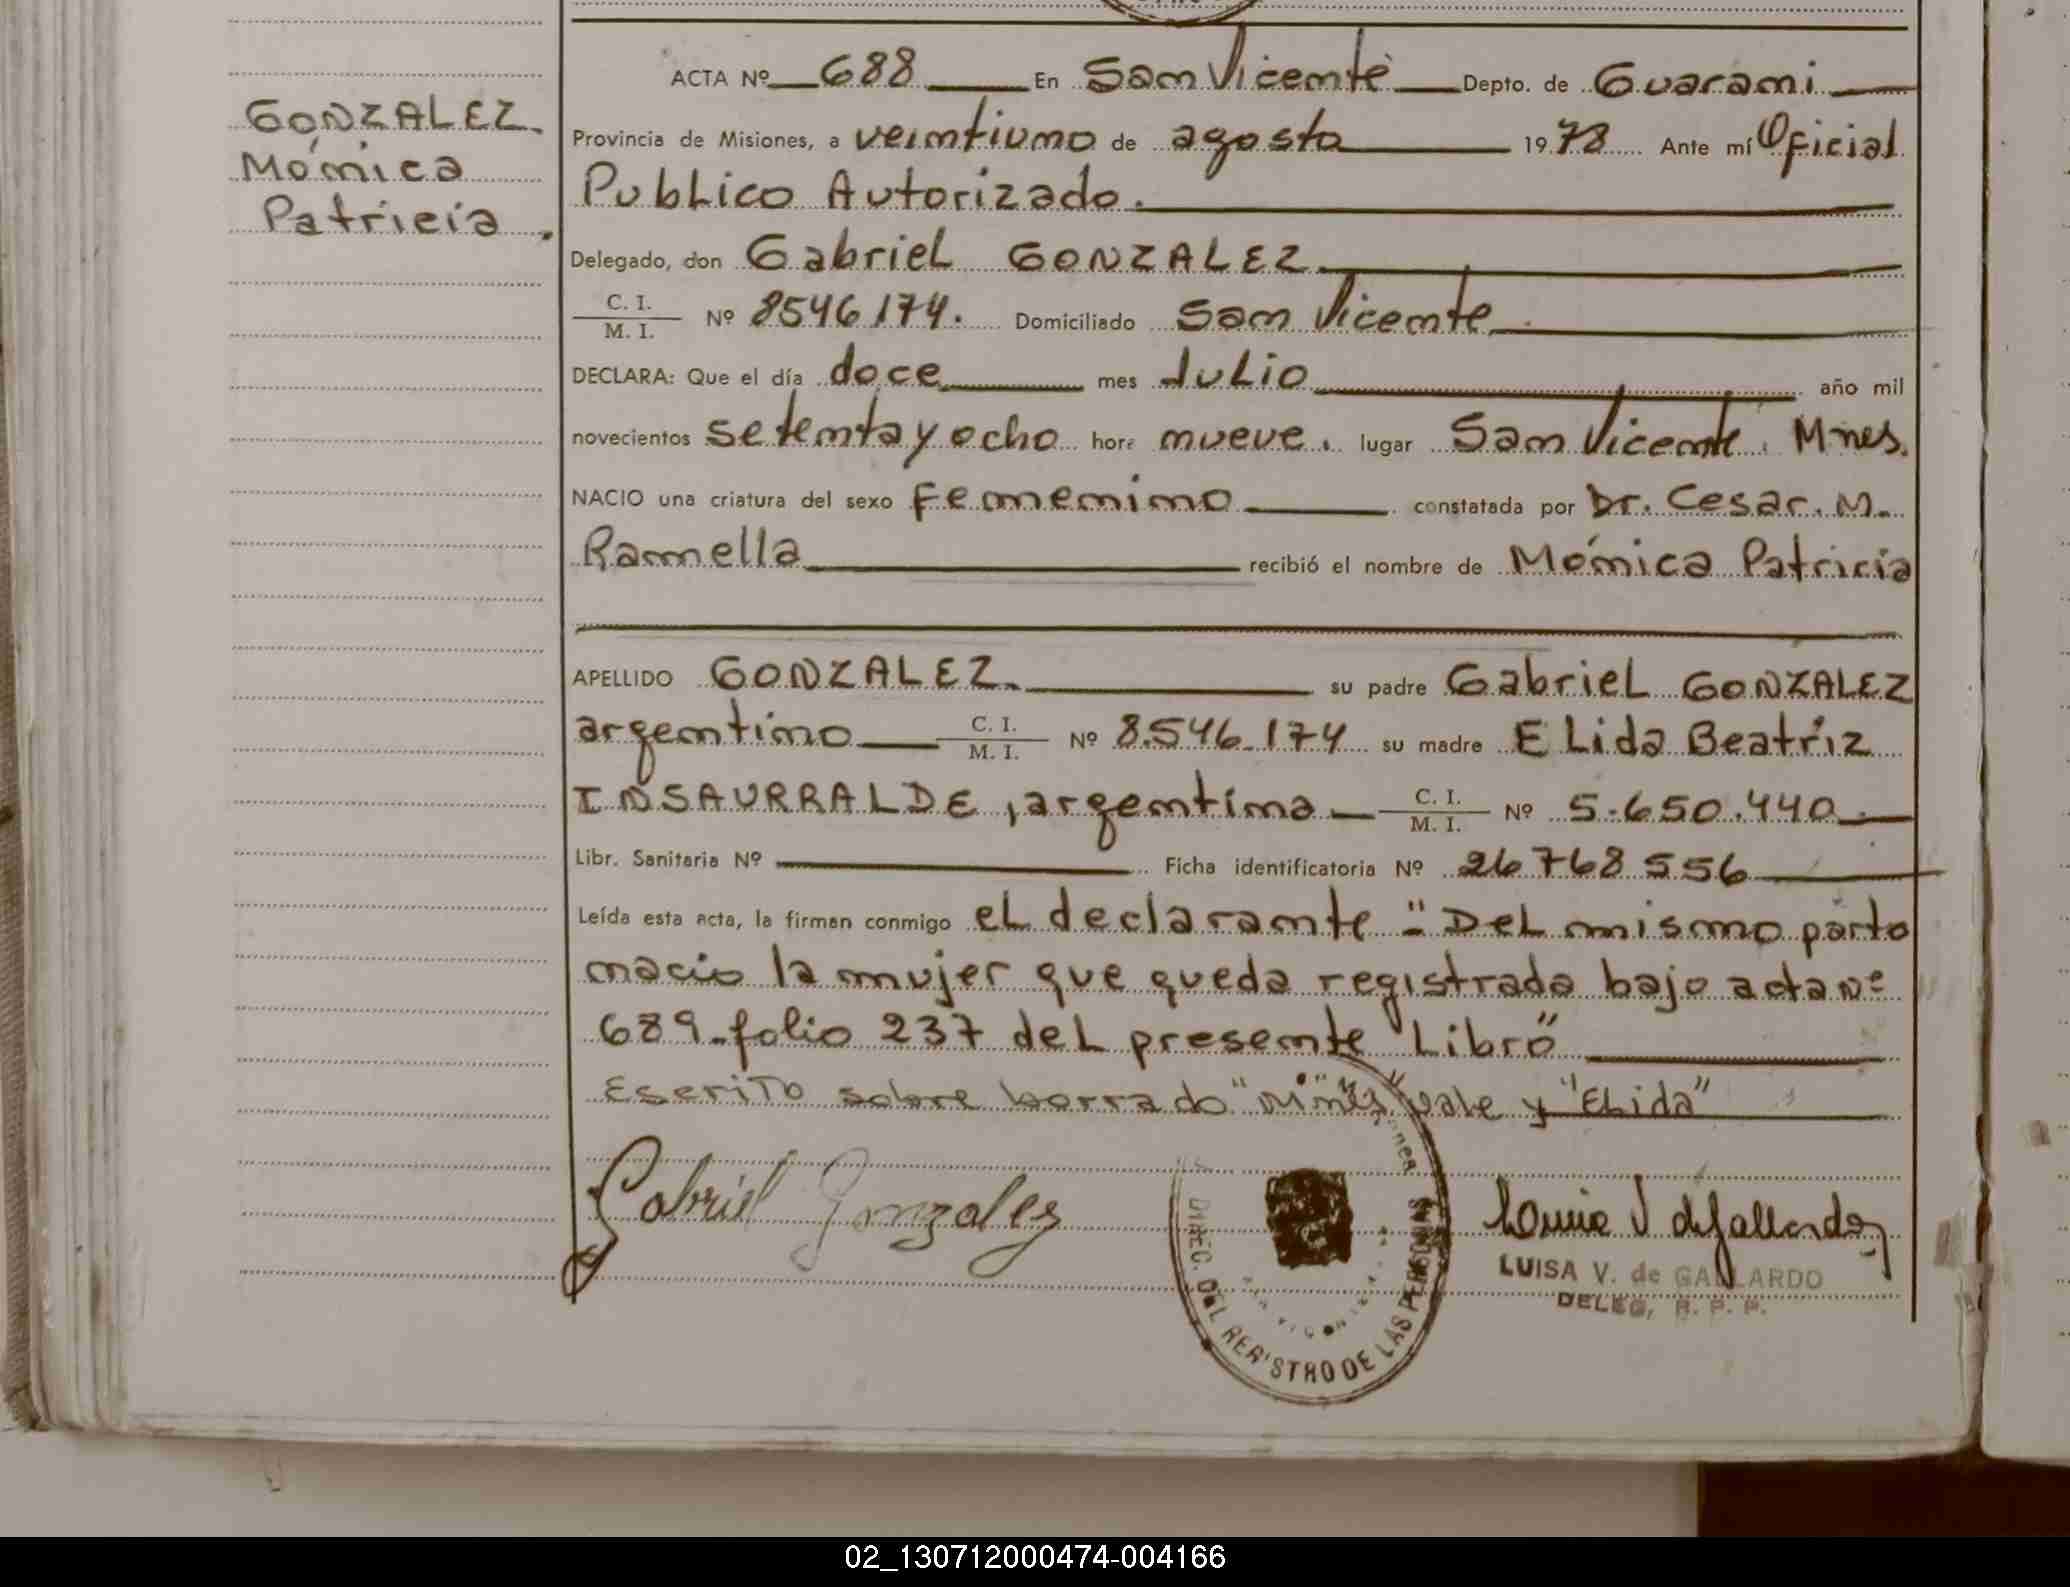 GONZALEZ.
Mónica
Patricia.
ACTA Nº 688 En San Vicente Depto. de Guarani
Provincia de Misiones, a veintiuno de agosto 1978 Ante mí Oficial
Publico Autorizado.
Delegado, don Gabriel GONZALEZ
C. I. / M. I. Nº 8546174. Domiciliado San Vicente
DECLARA: Que el día doce mes Julio año mil
novecientos setenta y ocho hora nueve. lugar San Vicente. Mnes.
NACIO una criatura del sexo femenino constatada por Dr. Cesar. M.
Ramella recibió el nombre de Mónica Patricia
APELLIDO GONZALEZ. su padre Gabriel GONZALEZ
argentino C. I. / M. I. Nº 8.546.174 su madre ELida Beatriz
INSAURRALDE, argentina C. I. / M. I. Nº 5.650.440
Libr. Sanitaria Nº Ficha identificatoria Nº 26768556
Leída esta acta, la firman conmigo el declarante = "Del mismo parto
nacio la mujer que queda registrada bajo acta nº
689 folio 237 del presente Libro"
Escrito sobre borrado "Mnes" vale y "ELida"
Gabriel Gonzalez
DIREC. DEL REGISTRO DE LAS PERSONAS
LUISA V. de GALLARDO
DELEG. R. P. P.
02_130712000474-004166